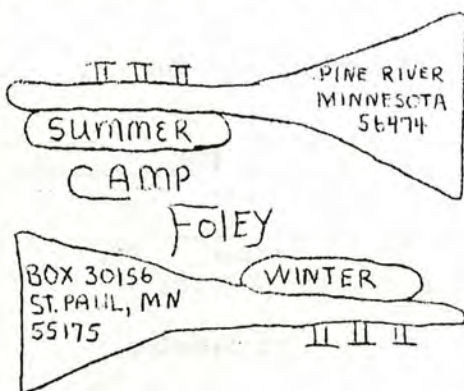 PINE RIVER
MINNESOTA
56474
SUMMER
CAMP
FOlEY
WINTER
BOX 30156
ST. PAUL, MN
55175